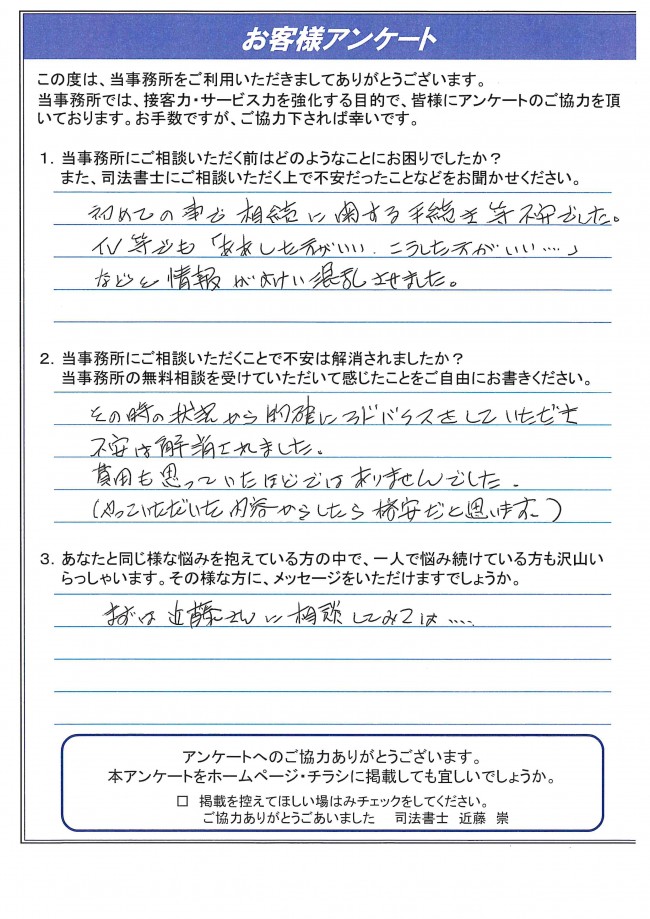 お客様アンケート
この度は、当事務所をご利用いただきましてありがとうございます。
当事務所では、接客力・サービス力を強化する目的で、皆様にアンケートのご協力を頂
いております。お手数ですが、ご協力下されば幸いです。
1. 当事務所にご相談いただく前はどのようなことにお困りでしたか？
また、司法書士にご相談いただく上で不安だったことなどをお聞かせください。
初めての事で相続に関する手続き等不安でした。
TV等でも「ああした方がいい、こうした方がいい……」
などと情報がよけい混乱させました。
2. 当事務所にご相談いただくことで不安は解消されましたか？
当事務所の無料相談を受けていただいて感じたことをご自由にお書きください。
その時の状況から的確にアドバイスをしていただき
不安は解消されました。
費用も思っていたほどではありませんでした。
(やっていただいた内容からしたら格安だと思います。)
3. あなたと同じ様な悩みを抱えている方の中で、一人で悩み続けている方も沢山い
らっしゃいます。その様な方に、メッセージをいただけますでしょうか。
まずは近藤さんに相談してみては……
アンケートへのご協力ありがとうございます。
本アンケートをホームページ・チラシに掲載しても宜しいでしょうか。
□ 掲載を控えてほしい場はみチェックをしてください。
ご協力ありがとうごあいました 司法書士 近藤 崇